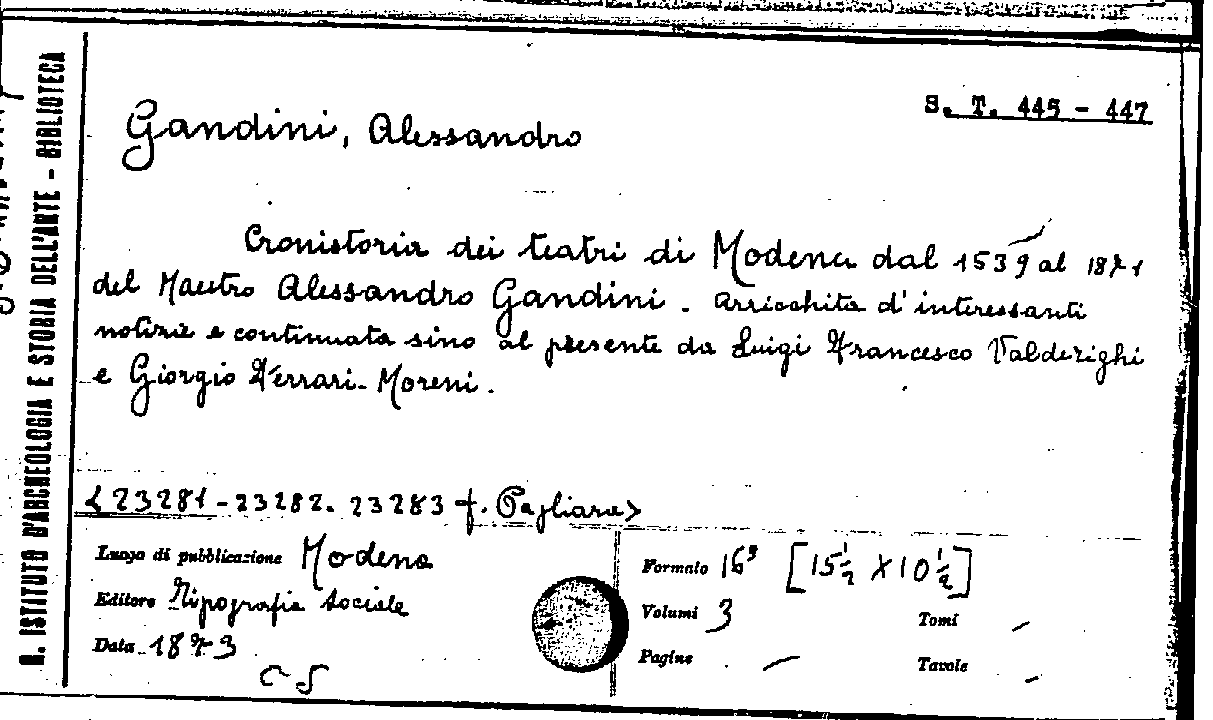 R. ISTITUTO D'ARCHEOLOGIA E STORIA DELL'ARTE - BIBLIOTECA
S. T. 445 - 447
Gandini, Alessandro
Cronistoria dei teatri di Modena dal 1539 al 1871
del Maestro Alessandro Gandini. Arricchita d'interessanti
notizie e continuata sino al presente da Luigi Francesco Valderighi
e Giorgio Ferrari-Moreni.
<23281-23282-23283 f. Pagliara>
Luogo di pubblicazione Modena
Editore Tipografia Sociale
Data 1873
CS
Formato 16° [15½ X 10½]
Volumi 3
Tomi -
Pagine -
Tavole -